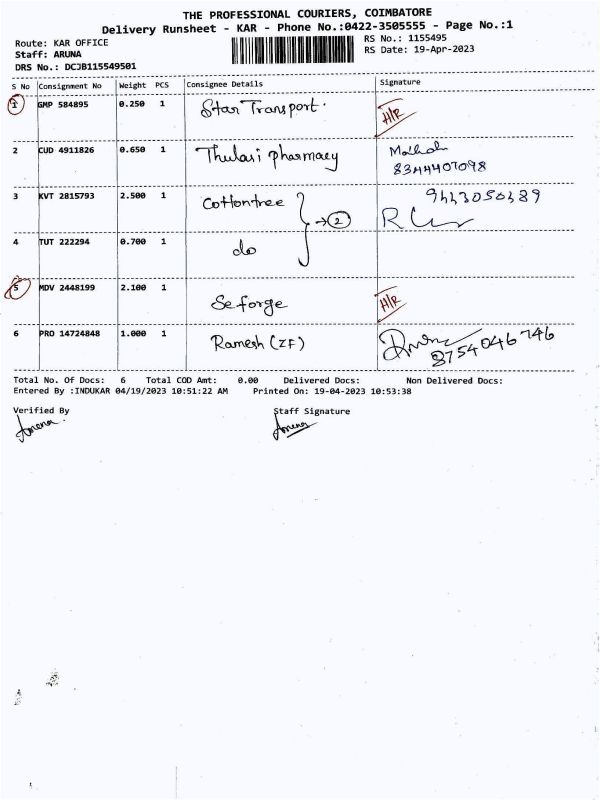 THE PROFESSIONAL COURIERS, COIMBATORE
Delivery Runsheet - KAR - Phone No.:0422-3505555 - Page No.:1
Route: KAR OFFICE
RS No.: 1155495
Staff: ARUNA
RS Date: 19-Apr-2023
DRS No.: DCJB115549501
S No Consignment No Weight PCS Consignee Details Signature
1 GMP 584895 0.250 1 Star Transport. H/R
2 CUD 4911826 0.650 1 Thulasi pharmacy
8344407098
3 KVT 2815793 2.500 1 Cottontree
→ 2
4 TUT 222294 0.700 1 do
5 MDV 2448199 2.100 1 Seforge H/R
6 PRO 14724848 1.000 1 Ramesh (ZF) 8754046746
Total No. Of Docs: 6 Total COD Amt: 0.00 Delivered Docs: Non Delivered Docs:
Entered By :INDUKAR 04/19/2023 10:51:22 AM Printed On: 19-04-2023 10:53:38
Verified By Staff Signature
Aruna. Aruna